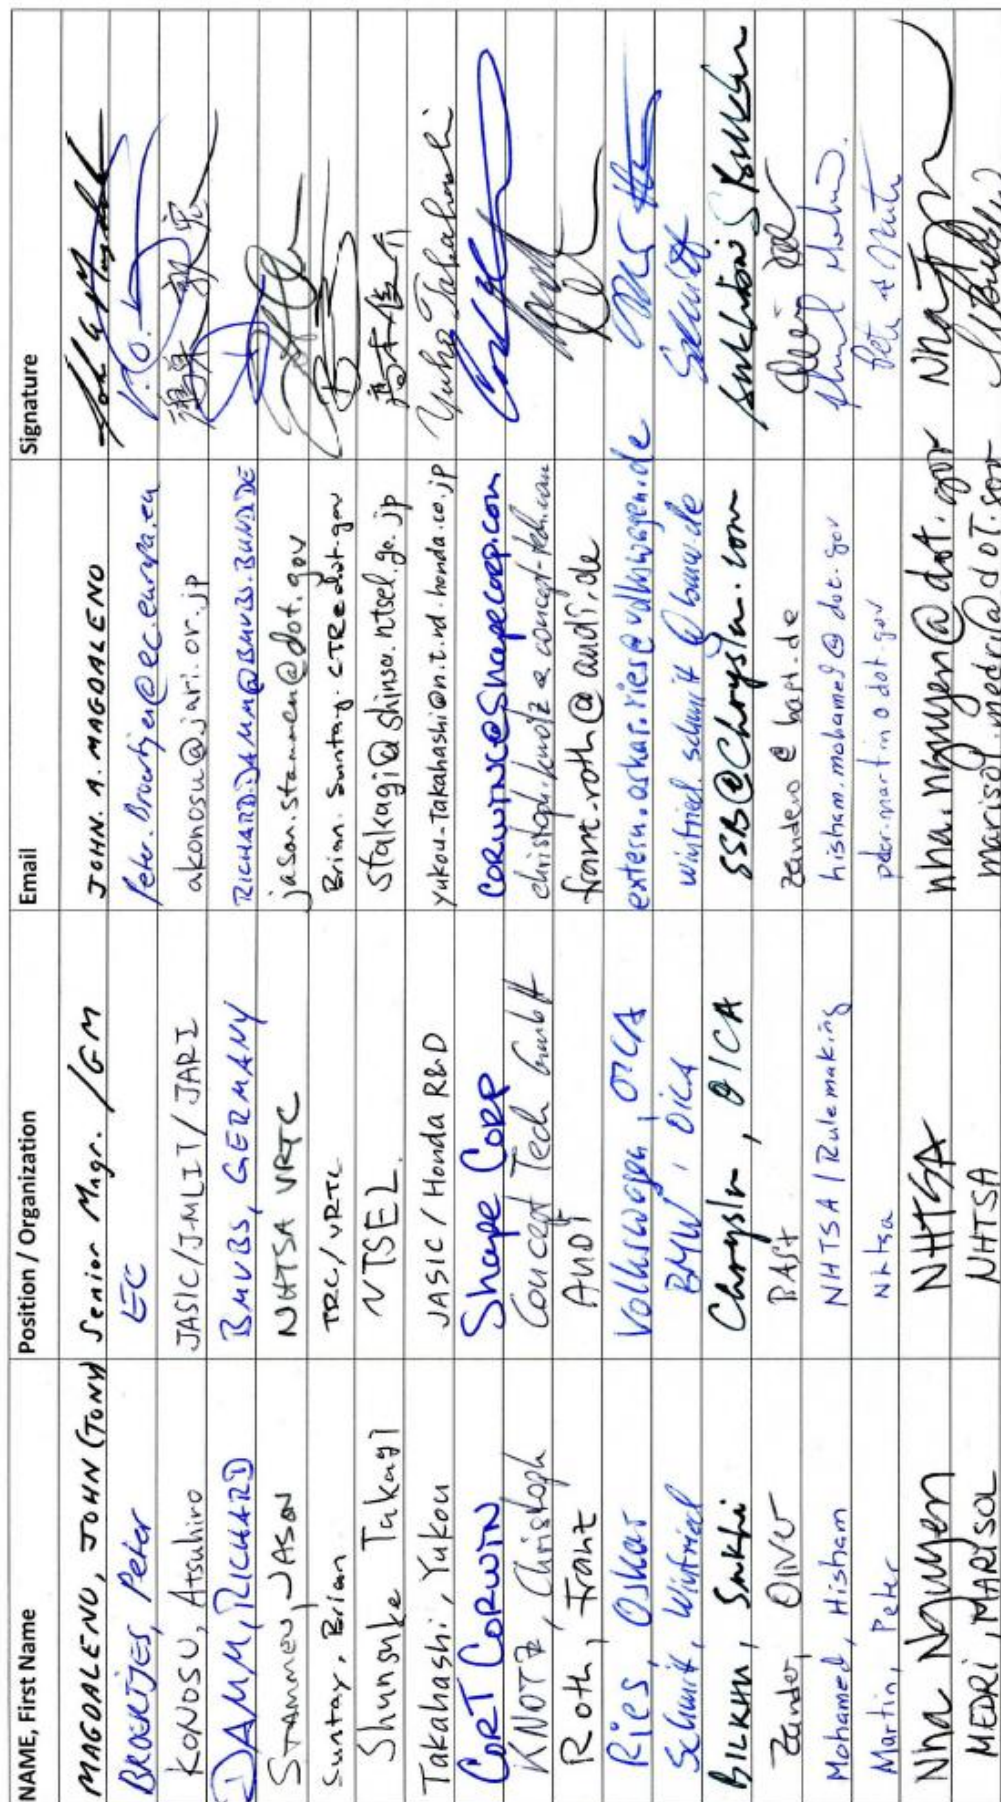 NAME, First Name Position / Organization Email Signature
MAGDALENO, JOHN (TONY) Senior Mngr. /GM JOHN. A. MAGDALENO
BROERTJES, Peter EC Peter.Broertjes@ec.europa.eu P.O.
KONOSU, Atsuhiro JASIC/J-MLIT/JARI akonosu@jari.or.jp
DAMM, RICHARD BMVBS, GERMANY RICHARD.DAMM@BMVBS.BUND.DE
STAMMEN, JASON NHTSA VRTC jason.stammen@dot.gov
Suntay, Brian TRC/VRTC Brian.Suntay.CTR@dot.gov
Shunsuke Takagi NTSEL stakagi@shinsa.ntsel.go.jp
Takahashi, Yukou JASIC/Honda R&D yukou-takahashi@n.t.rd.honda.co.jp Yukou Takahashi
CORT CORWIN Shape CORP CORWINC@Shapecorp.com
KNOTZ, Christoph Concept Tech GmbH christoph.knotz@concept-tech.com
Roth, Franz AUDI franz.roth@audi.de
Ries, Oskar Volkswagen, OICA extern.oskar.ries@volkswagen.de
Schmitt, Winfried BMW, OICA winfried.schmitt@bmw.de Schmitt
BILKHU, Sukhi Chrysler, OICA SSB@Chrysler.com Sukhbir S Bilkhu
Zander, Oliver BASt zander@bast.de
Mohamed, Hisham NHTSA/Rulemaking hisham.mohamed@dot.gov
Martin, Peter Nhtsa peter.martin@dot.gov
Nha Nguyen NHTSA nha.nguyen@dot.gov
MEDRI, MARISOL NHTSA marisol.medri@dot.gov